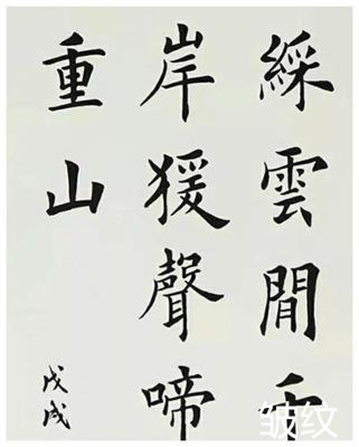 綵雲閒
岸猨聲啼
重山
戊戌
皱纹